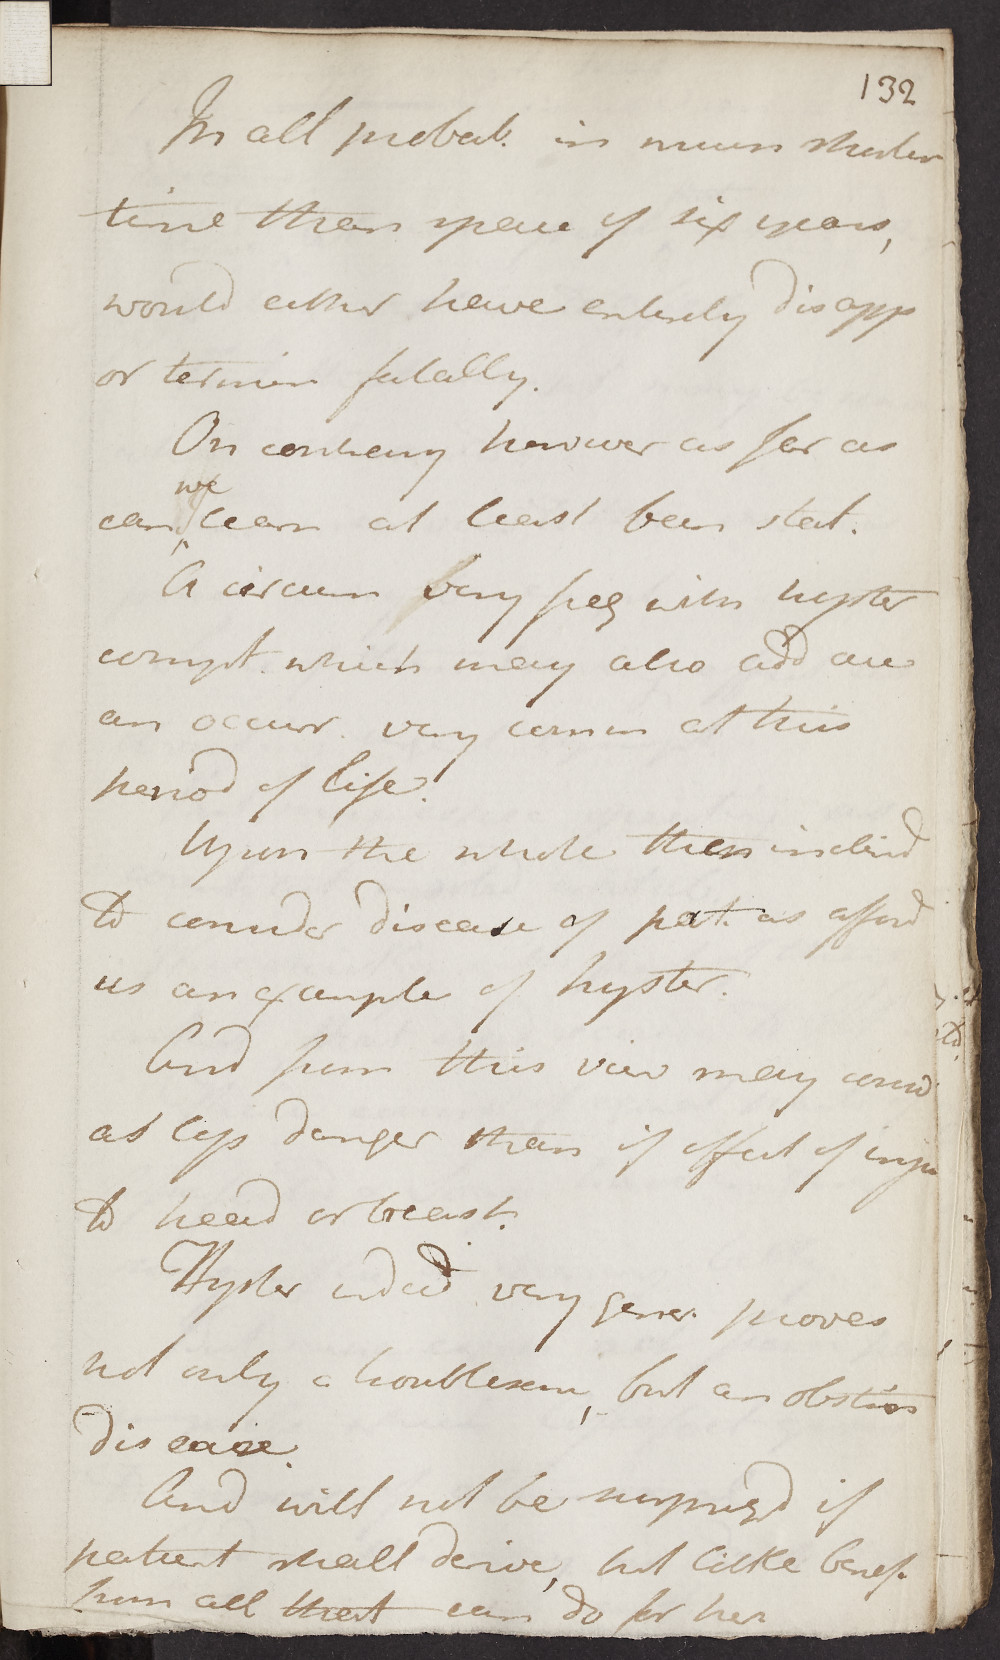 132
In all probab. in mum shorter
time than space of six years,
would either have entirely disapp
or termin fatally.
On contrary however as far as
we
can learn at least been stat.
A circum very freq with hyster
compt. which may also add are
an occurr. very comm at this
period of life.
Upon the whole then inclind
to consider disease of pat. as afford
us an example of hyster.
And from this view may consid
as less danger than if effect of inju
to head or breast.
Hyster indeed very gener. proves
not only a troublesom, but an obstin
disease.
And will not be surprizd if
patient shall derive, but little benef.
from all that can do for her